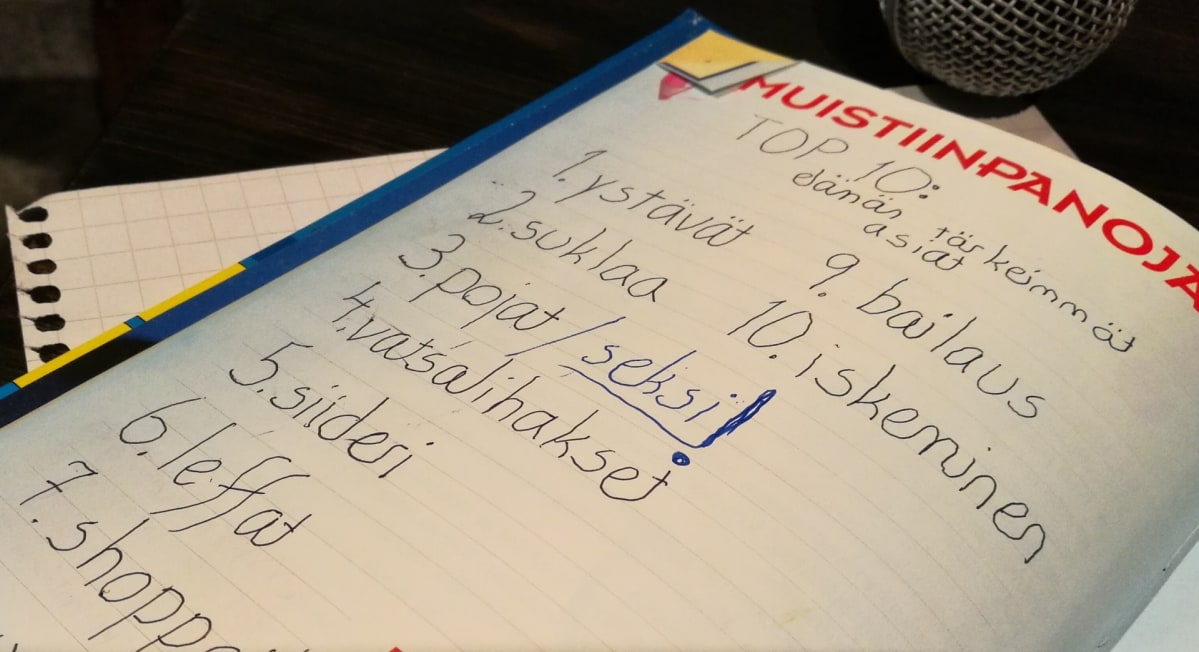 MUISTIINPANOJA
TOP 10:
elämän tärkeimmät
asiat
1. ystävät
2. suklaa
3. pojat / seksi!
4. vatsalihakset
5. siideri
6. leffat
7. shopp
9. bailaus
10. iskeminen